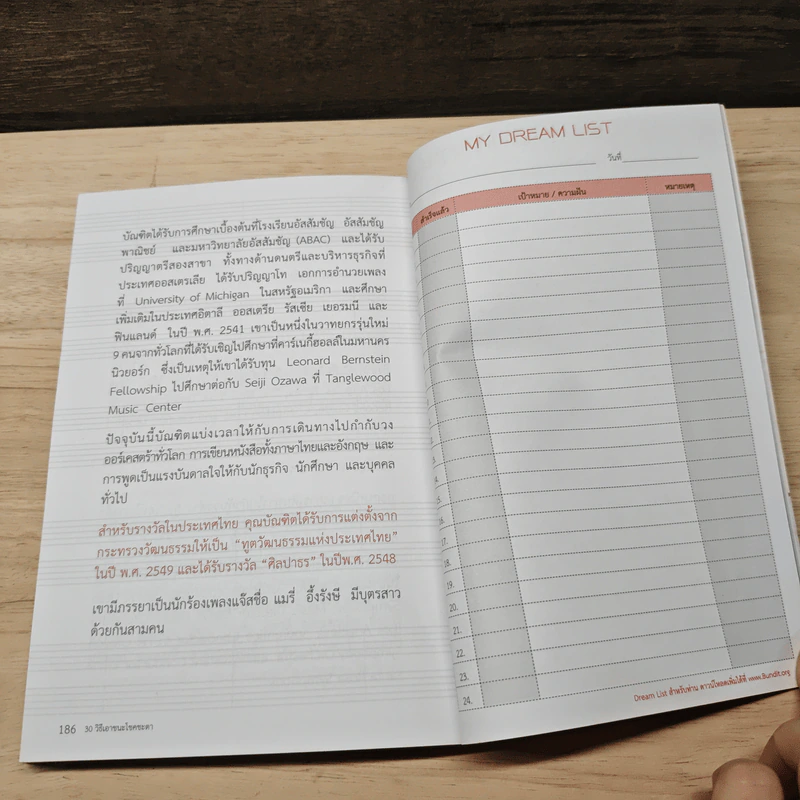 บัณฑิตได้รับการศึกษาเบื้องต้นที่โรงเรียนอัสสัมชัญ อัสสัมชัญ
พาณิชย์ และมหาวิทยาลัยอัสสัมชัญ (ABAC) และได้รับ
ปริญญาตรีสองสาขา ทั้งทางด้านดนตรีและบริหารธุรกิจที่
ประเทศออสเตรเลีย ได้รับปริญญาโท เอกการอำนวยเพลง
ที่ University of Michigan ในสหรัฐอเมริกา และศึกษา
เพิ่มเติมในประเทศอิตาลี ออสเตรีย รัสเซีย เยอรมนี และ
ฟินแลนด์ ในปี พ.ศ. 2541 เขาเป็นหนึ่งในวาทยกรรุ่นใหม่
9 คนจากทั่วโลกที่ได้รับเชิญไปศึกษาที่คาร์เนกี้ฮอลล์ในมหานคร
นิวยอร์ก ซึ่งเป็นเหตุให้เขาได้รับทุน Leonard Bernstein
Fellowship ไปศึกษาต่อกับ Seiji Ozawa ที่ Tanglewood
Music Center
ปัจจุบันนี้บัณฑิตแบ่งเวลาให้กับการเดินทางไปกำกับวง
ออร์เคสตร้าทั่วโลก การเขียนหนังสือทั้งภาษาไทยและอังกฤษ และ
การพูดเป็นแรงบันดาลใจให้กับนักธุรกิจ นักศึกษา และบุคคล
ทั่วไป
สำหรับรางวัลในประเทศไทย คุณบัณฑิตได้รับการแต่งตั้งจาก
กระทรวงวัฒนธรรมให้เป็น “ทูตวัฒนธรรมแห่งประเทศไทย”
ในปี พ.ศ. 2549 และได้รับรางวัล “ศิลปาธร” ในปีพ.ศ. 2548
เขามีภรรยาเป็นนักร้องเพลงแจ๊สชื่อ แมรี่ อึ้งรังษี มีบุตรสาว
ด้วยกันสามคน
186 30 วิธีเอาชนะโชคชะตา
MY DREAM LIST
วันที่
สำเร็จแล้ว เป้าหมาย / ความฝัน หมายเหตุ
16.
17.
18.
19.
20.
21.
22.
23.
24.
Dream List สำหรับท่าน ดาวน์โหลดเพิ่มได้ที่ www.Bundit.org